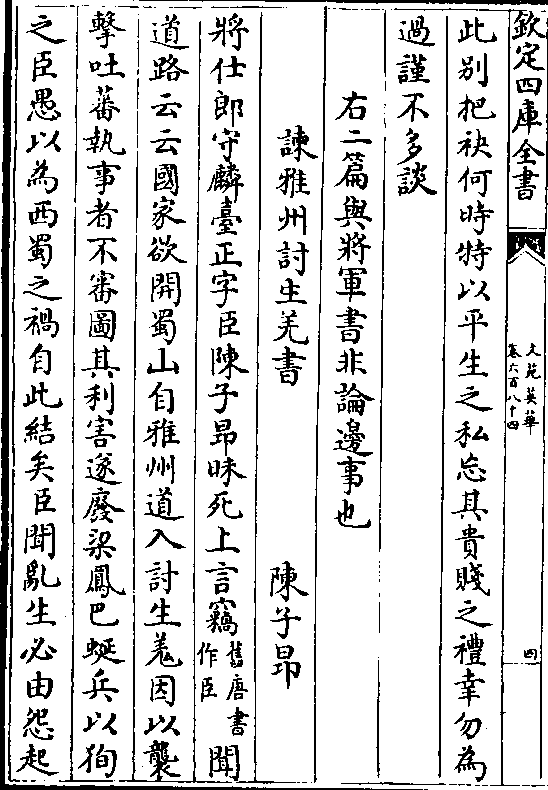 欽定四庫全書
文苑英華
卷六百八十四
四
此别把袂何時特以平生之私忘其貴賤之禮幸勿為
過謹不多談
右二篇與將軍書非論邊事也
諫雅州討生羌書
陳子昂
將仕郎守麟臺正字臣陳子昻昧死上言竊舊唐書作臣聞
道路云云國家欲開蜀山自雅州道入討生羗因以襲
擊吐蕃執事者不審圖其利害遂廢梁鳳巴蜒兵以徇
之臣愚以為西蜀之禍自此結矣臣聞亂生必由怨起